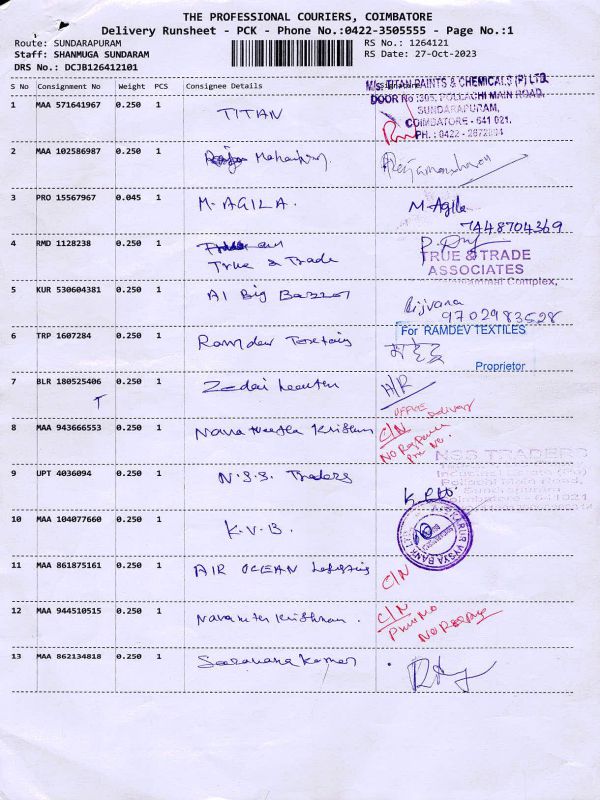 THE PROFESSIONAL COURIERS, COIMBATORE
Delivery Runsheet - PCK - Phone No.:0422-3505555 - Page No.:1
Route: SUNDARAPURAM
RS No.: 1264121
Staff: SHANMUGA SUNDARAM
RS Date: 27-Oct-2023
DRS No.: DCJB126412101
S No Consignment No Weight PCS Consignee Details
M/s. TITAN PAINTS & CHEMICALS (P) LTD.
DOOR No : 305, POLLACHI MAIN ROAD,
SUNDARAPURAM,
COIMBATORE - 641 021.
PH. : 0422 - 2672834
1 MAA 571641967 0.250 1 TITAN
2 MAA 102586987 0.250 1
3 PRO 15567967 0.045 1 M. AGILA. M. Agila
7448704369
4 RMD 1128238 0.250 1 True & Trade
TRUE & TRADE
ASSOCIATES
Complex,
5 KUR 530604381 0.250 1 Al Big Bazzor Rijvana
9702983528
6 TRP 1607284 0.250 1 Ramdev Textiles
For RAMDEV TEXTILES
Proprietor
7 BLR 180525406 0.250 1 Zodai
T
OFFICE Delivery
8 MAA 943666553 0.250 1 C/N
NO Response
9 UPT 4036094 0.250 1 N.S.S. Traders
NSS TRADERS
Pollachi Main Road,
10 MAA 104077660 0.250 1 K.V.B.
KARUR VYSYA BANK LTD
11 MAA 861875161 0.250 1 AIR OCEAN Logistics C/N
12 MAA 944510515 0.250 1 C/N
13 MAA 862134818 0.250 1 Saravana kumar